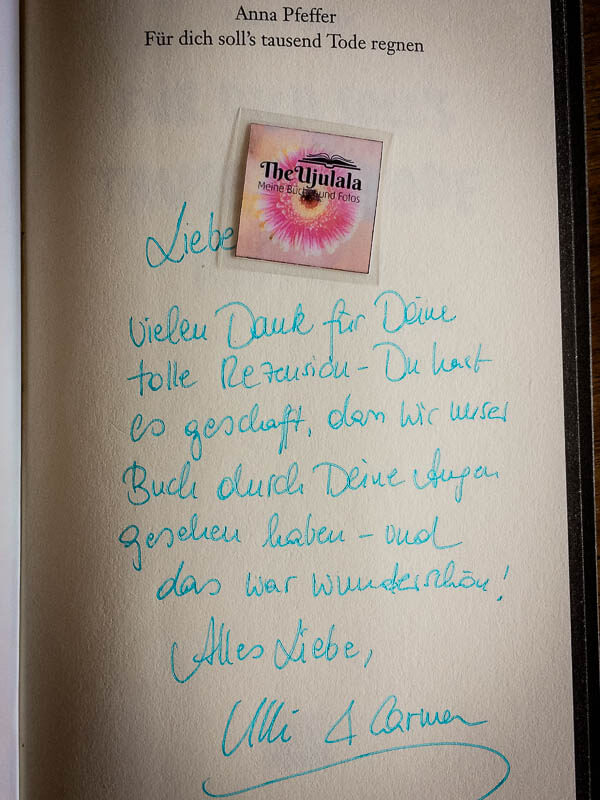 Anna Pfeffer
Für dich soll's tausend Tode regnen
TheUjulala
Meine Bücher und Fotos
Liebe
vielen Dank für Deine
tolle Rezension – Du hast
es geschafft, dass wir unser
Buch durch Deine Augen
gesehen haben – und
das war wunderschön!
Alles Liebe,
Ulli & Carmen